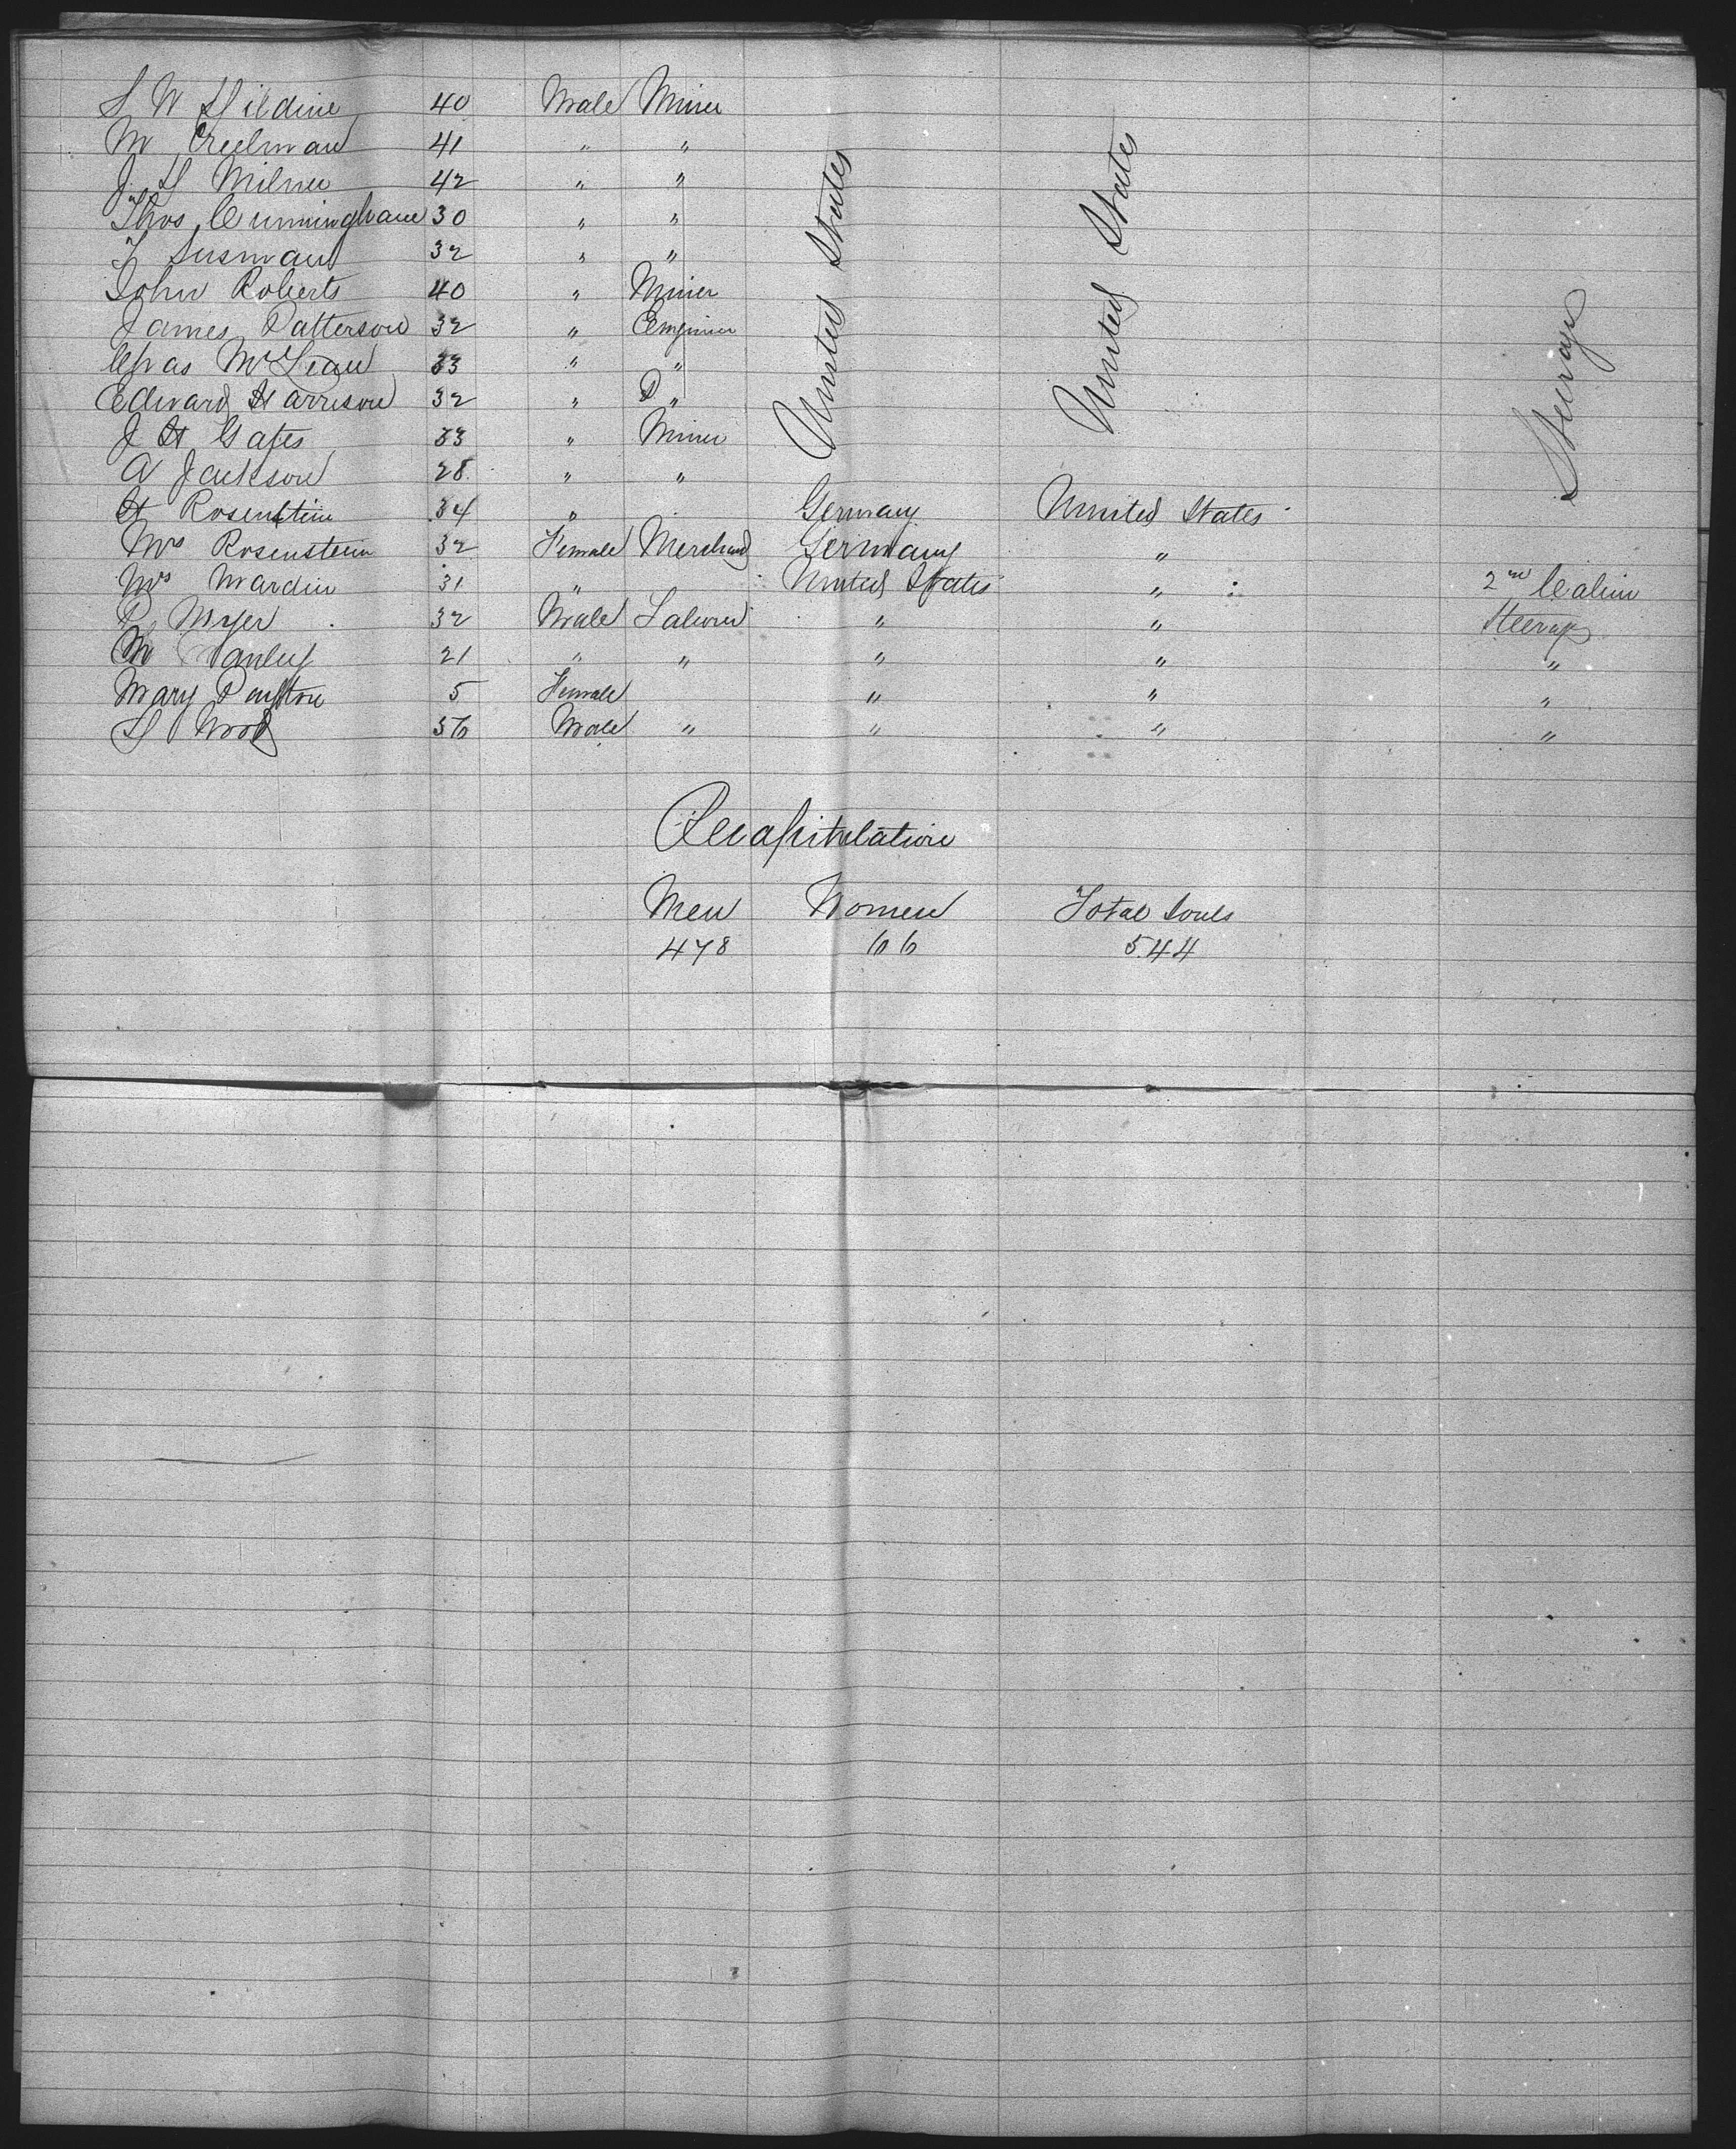 S W Hildine 40 Male Miner
M Creelman 41 " "
J. H Milner 42 " "
Thos Cunningham 30 " "
F Susman 32 " "
John Roberts 40 " Miner
James Patterson 32 " Engineer
Chas McLean 33 " "
Edward Harrison 32 " D "
J H Gates 33 " Miner
A Jackson 28 " "
United States
United States
Steerage
H Rosenstein 34 " Germany United States
Mrs Rosenstein 32 Female Merchand Germany "
Mrs Mardin 31 " United States " 2nd Cabin
P Myer 32 Male Laborer " " Steerage
M 21 " " " " "
Mary Poulton 5 Female " " "
H Wood 36 Male " " " "
Recapitulation
Men Women Total Souls
478 66 544